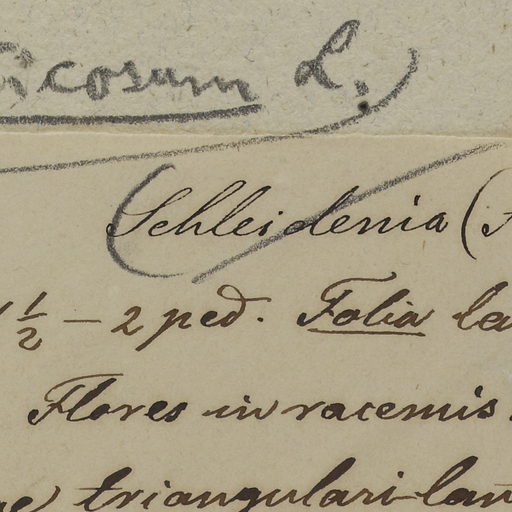 icosum L.
Schleidenia (
1/2 – 2 ped. Folia la
Flores in racemis
triangulari-lan